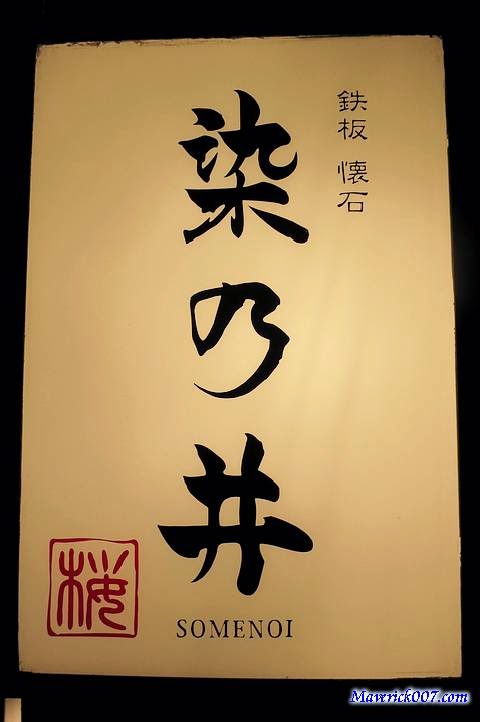 鉄板 懐石
染乃井
桜
SOMENOI
Maverick007.com